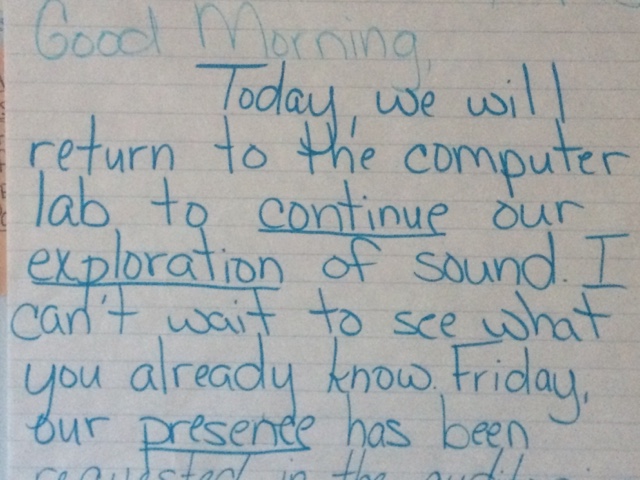 Good Morning,
Today, we will
return to the computer
lab to continue our
exploration of sound. I
can't wait to see what
you already know. Friday,
our presence has been
requested in the